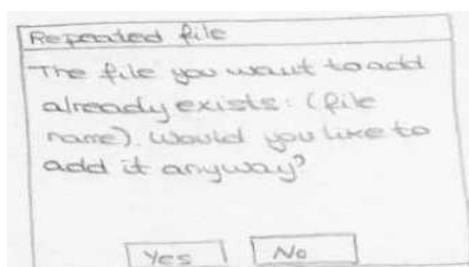 Repeated file
The file you want to add
already exists: (file
name). Would you like to
add it anyway?
Yes
No